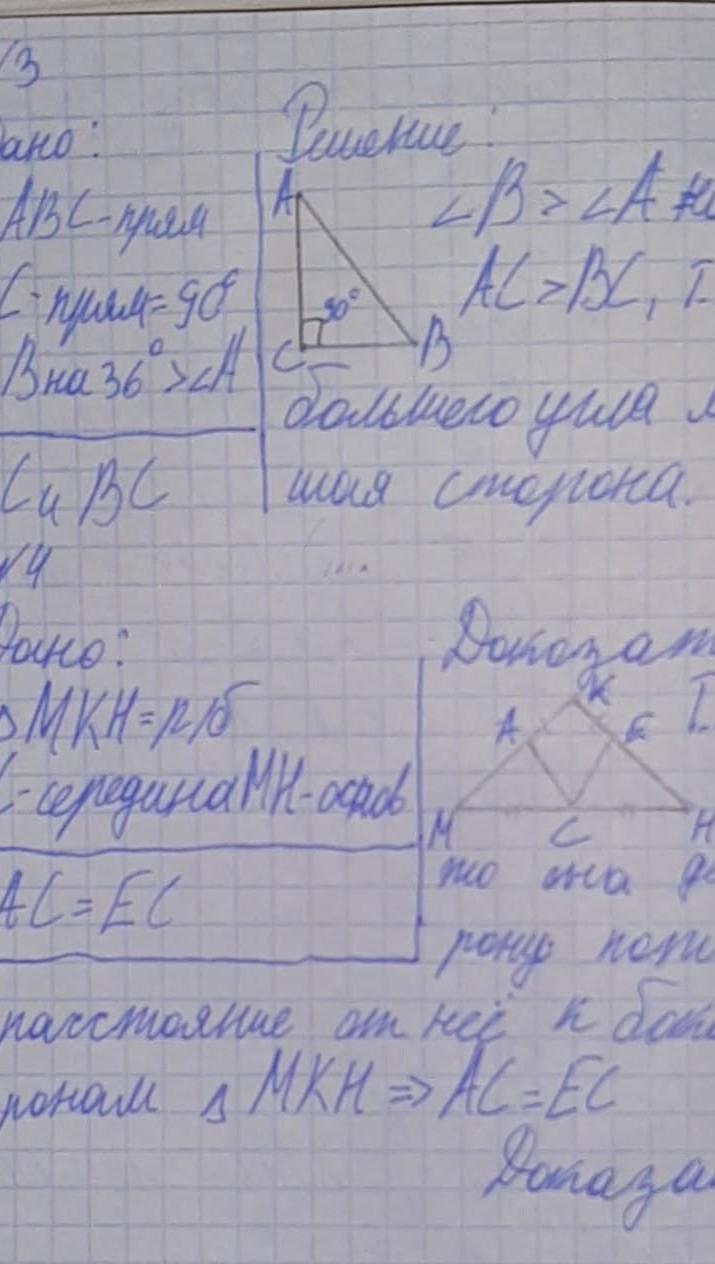 √3
Дано:
Решение:
ABC-прям
C-прям=90°
B на 36° > ∠A
C и BC
A
C
B
90°
∠B > ∠A
AC > BC, Т
большего угла
шая сторона.
√4
Дано:
Δ MKH = р/б
C-середина MH-основ
AC = EC
Доказат
M
A
K
E
C
H
то она де
рону
расстояние от неё к бок
ронам Δ MKH => AC = EC
Доказа